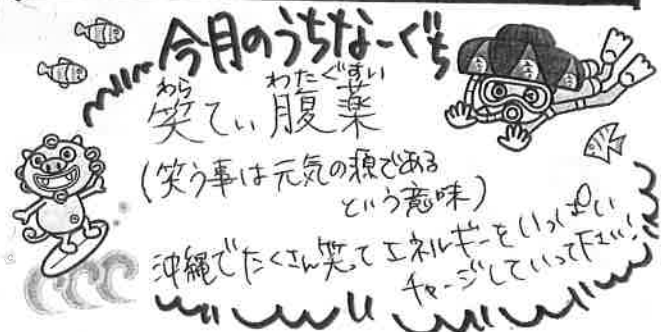 今月のうちなーぐち
わら わたぐすい
笑てぃ腹薬
(笑う事は元気の源である
という意味)
沖縄でたくさん笑ってエネルギーをいっぱい
チャージしていって下さい!